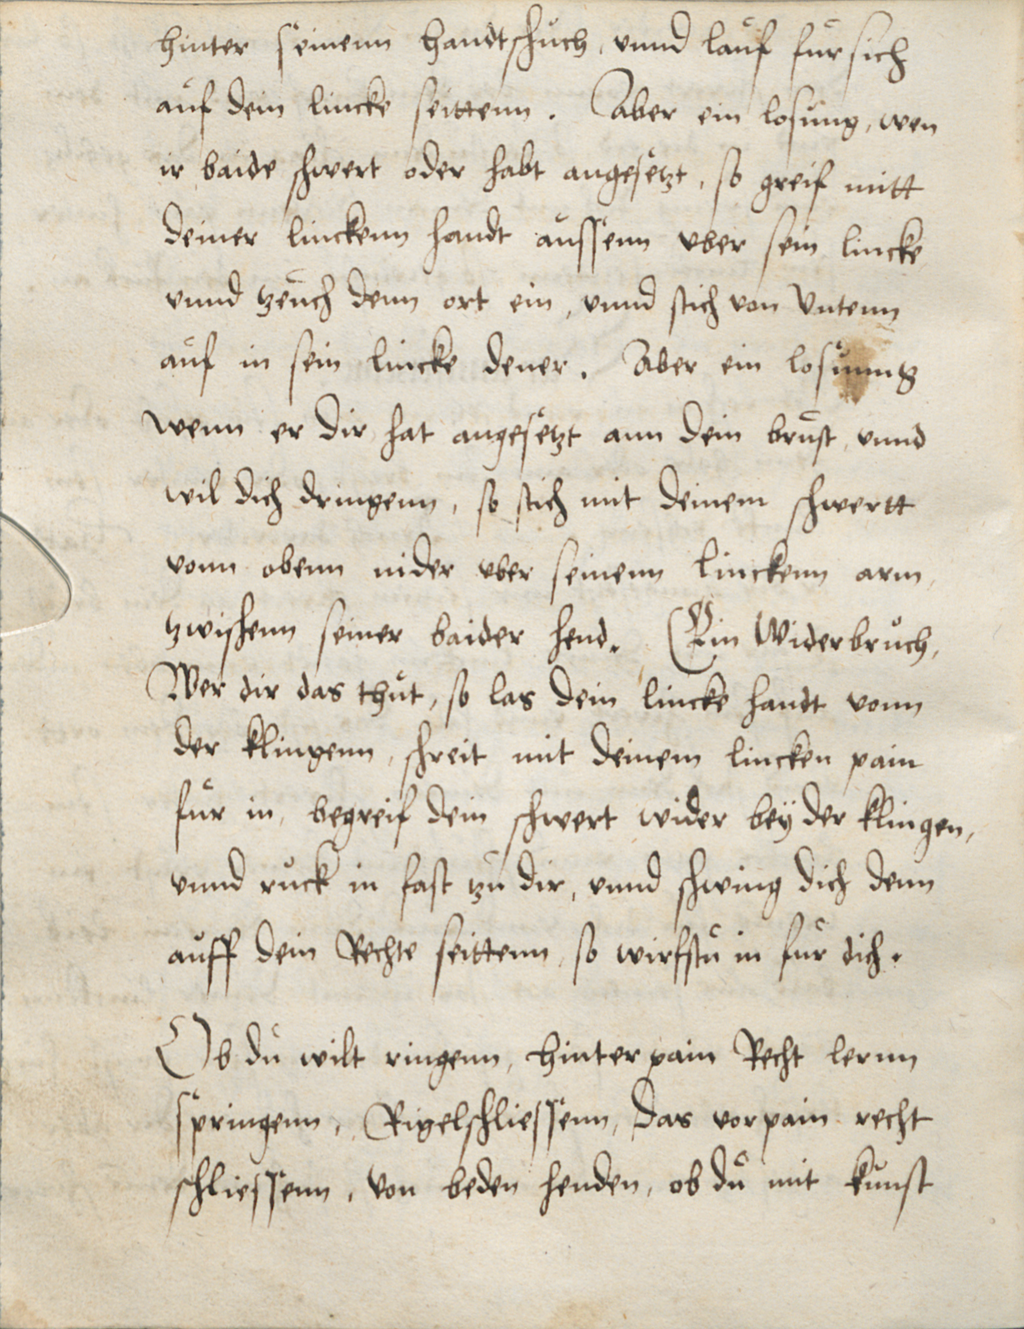 hinter seinenn handtschuch, vnnd lauf fur sich
auf dein lincke seittenn. Aber ein losung, wen
ir baide schwert oder habt angesetzt, so greif mitt
deiner linckenn handt aussenn vber sein lincke
vnnd tzeuch denn ort ein, vnnd stich von Vntenn
auf in sein lincke dener. Aber ein losunng
wenn er dir hat angesetzt ann dein brust, vnnd
wil dich dringenn, so stich mit deinem schwertt
vonn obenn nider vber seinenn linckenn arm,
tzwishenn seiner baider hend. Ein Widerbruch,
Wer dir das thut, so las dein lincke handt vonn
der klingenn, schreit mit deinem lincken pain
fur in, begreif dein schwert wider bey der klingen,
vnnd ruck in fast tzu dir, vnnd schwing dich denn
auff dein Rechte seittenn, so wirfstu in fur dich.
Ob du wilt ringenn, hinter pain Recht lernn
springenn, Rigelschliessenn, das vorpain recht
schliessenn, von beden henden, ob du mit kunst